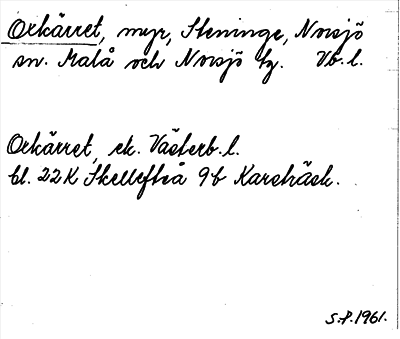 Orkärret, myr, Steninge, Norsjö
sn. Malå och Norsjö tg. Vb. l.
Orkärret, ek. Västerb. l.
bl. 22K Skellefteå 9b Karsträsk.
S.P. 1961.